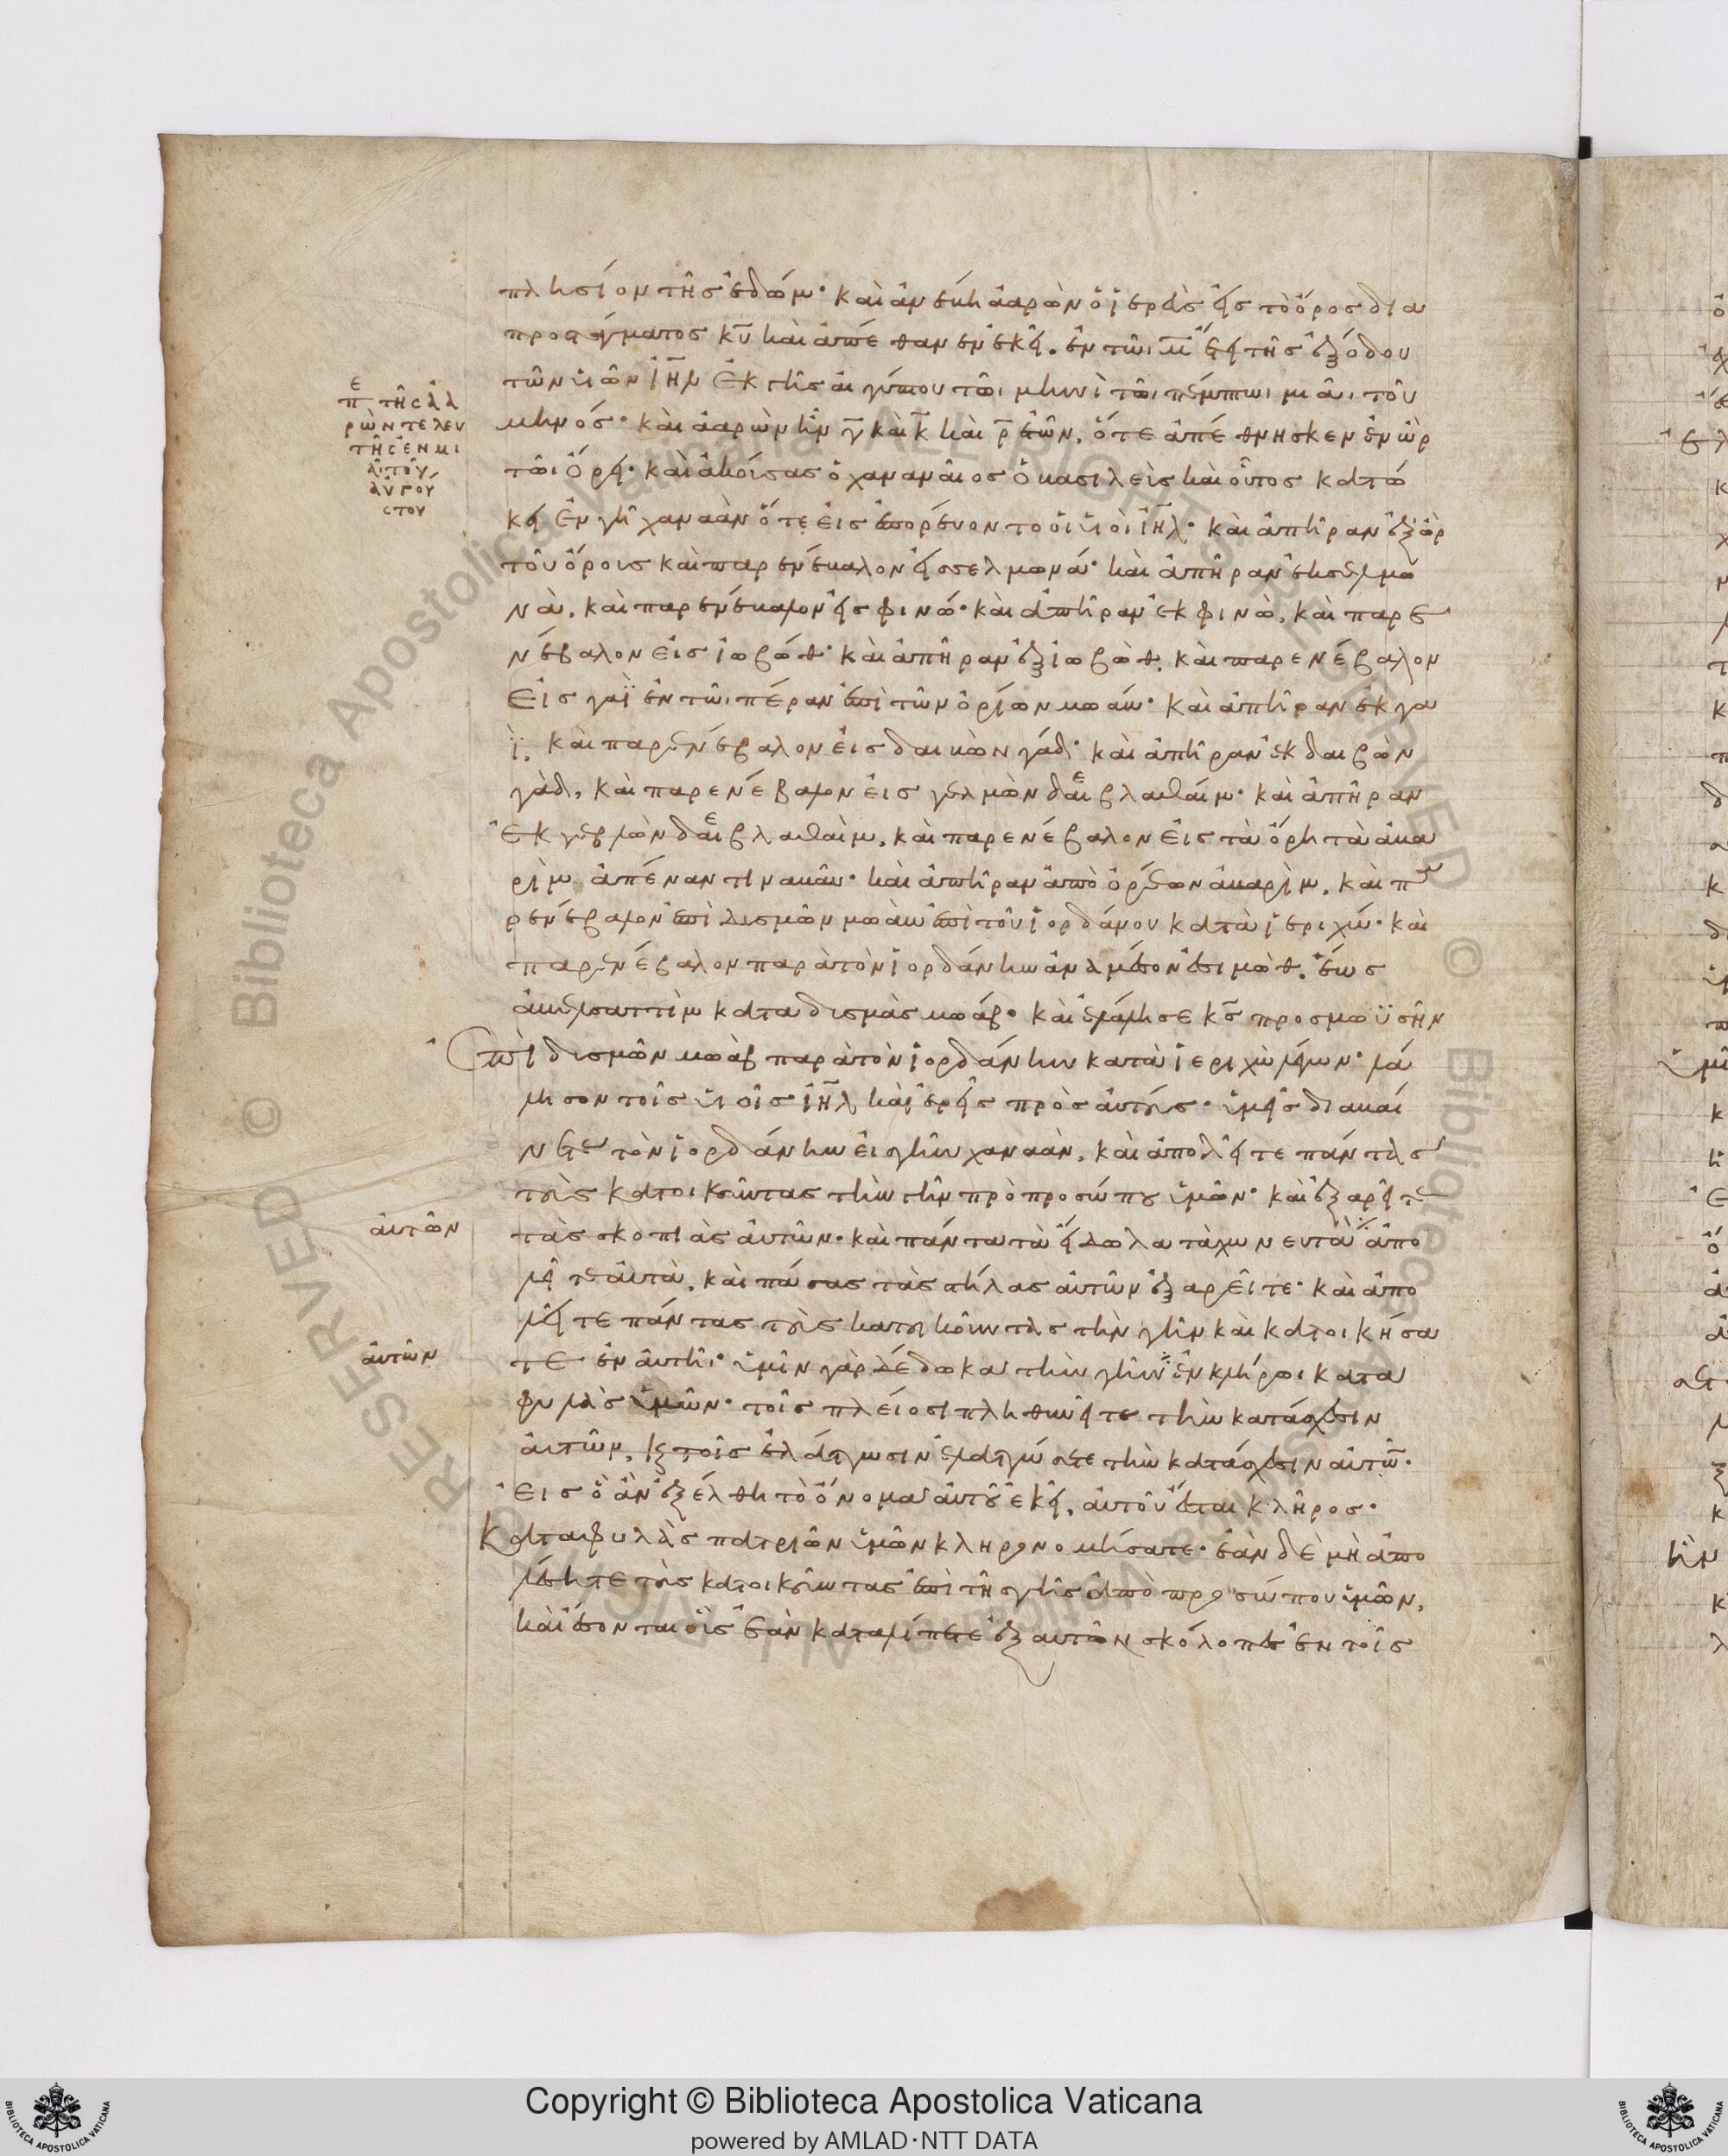 πλησίον τῆς ἐδώμ· καὶ ἀνέβη ἀαρὼν ὁ ἱερεὺς εἰς τὸ ὄρος δια
προστάγματος κ̅υ̅ καὶ ἀπέθανεν ἐκεῖ. ἐν τῶι μ̅ ἔτει τῆς ἐξόδου
τῶν υἱῶν ι̅η̅λ̅ ἐκ γῆς αἰγύπτου τῶι μηνὶ τῶι πέμπτωι μιᾶι τοῦ
μηνός· καὶ ἀαρὼν ἦν γ̅ καὶ κ̅ καὶ ρ̅ ἐτῶν, ὅτε ἀπέθνησκεν ἐν ὢρ
τῶι ὄρει· καὶ ἀκούσας ὁ χαναναῖος ὁ βασιλεὺς καὶ οὗτος κατώ
κει ἐν γῆ χαναὰν ὅτε εἰσεπορεύοντο οἱ υἱοὶ ι̅η̅λ̅· καὶ ἀπῆραν ἐξ ὢρ
τοῦ ὄρους καὶ παρενέβαλον εἰς σελμωνά· καὶ ἀπῆραν ἐκ σελμω
νὰ, καὶ παρενέβαλον εἰς φινώ· καὶ ἀπῆραν ἐκ φινὼ, καὶ παρε
νέβαλον εἰς ἰωβώθ· καὶ ἀπῆραν ἐξ ἰωβὼθ, καὶ παρενέβαλον
εἰς γαῒ ἐν τῶι πέραν ἐπὶ τῶν ὁρίων μωάβ· καὶ ἀπῆραν ἐκ γα
ῒ, καὶ παρενέβαλον εἰς δαιβὼν γάδ· καὶ ἀπῆραν ἐκ δαιβὼν
γὰδ, καὶ παρενέβαλον εἰς γελμὼν δαιβλαθάιμ· καὶ ἀπῆραν
ἐκ γελμὼν δαιβλαθὰιμ, καὶ παρενέβαλον εἰς τὰ ὄρη τὰ ἀβα
ρὶμ ἀπέναντι ναβάυ· καὶ ἀπῆραν ἀπὸ ὀρέων ἀβαρὶμ, καὶ πα
ρενέβαλον ἐπὶ δυσμῶν μωὰβ ἐπὶ τοῦ ἰορδάνου κατὰ ἱεριχώ· καὶ
παρενέβαλον παρὰ τὸν ἰορδάνην ἀνὰ μέσον ἐσιμὼθ, ἕως
ἀβελσαττὶμ κατα δυσμὰς μωάβ· καὶ ἐλάλησε κ̅ς̅ προς μωϋσῆν
ἐπὶ δυσμῶν μωὰβ παρὰ τὸν ἰορδάνην κατὰ ἱεριχὼ λέγων· λά
λησον τοῖς υἱοῖς ι̅η̅λ̅ καὶ ἐρεῖς πρὸς αὐτούς· ὑμεῖς διαβαί
νετε τὸν ἰορδάνην εἰς γῆν χαναὰν, καὶ ἀπολεῖτε πάντας
τοὺς κατοικοῦντας τὴν γῆν πρὸ προσώπου ὑμῶν· καὶ ἐξαρεῖτε
τὰς σκοπιὰς αὐτῶν· καὶ πάντα τὰ εἴδωλα τὰ χωνευτὰ ἀπο
αὐτῶν
λεῖτε αὐτὰ, καὶ πάσας τὰς στήλας αὐτῶν ἐξαρεῖτε· καὶ ἀπο
λεῖτε πάντας τοὺς κατοικοῦντας τὴν γῆν καὶ κατοικήσα
τε ἐν αὐτῆι· ὑμῖν γὰρ δέδωκα τὴν γῆν ἐν κλήρωι κατα
αὐτῶν
φυλὰς ὑμῶν· τοῖς πλείοσι πληθυνεῖτε τὴν κατάσχεσιν
αὐτῶν, κ̀ τοῖς ἐλάττωσιν ἐλαττώσετε τὴν κατάσχεσιν αὐτῶν·
εἰς ὃ ἂν ἐξέλθη τὸ ὄνομα αὐτοῦ ἐκεῖ, αὐτοῦ ἔσται κλῆρος·
κατα φυλὰς πατριῶν ὑμῶν κληρονομήσατε· ἐὰν δὲ μὴ ἀπο
λέσητε τοὺς κατοικοῦντας ἐπὶ τῆς γῆς ἀπὸ προσώπου ὑμῶν,
καὶ ἔσονται οὓς ἐὰν καταλίπετε ἐξ αυτῶν σκόλοπες ἐν τοῖς
ε
π τῆς ἀα
ρὼν τελευ
τῆς ἐν μι
ᾶι τοῦ
αὐγού
στου
Copyright © Biblioteca Apostolica Vaticana
powered by AMLAD·NTT DATA